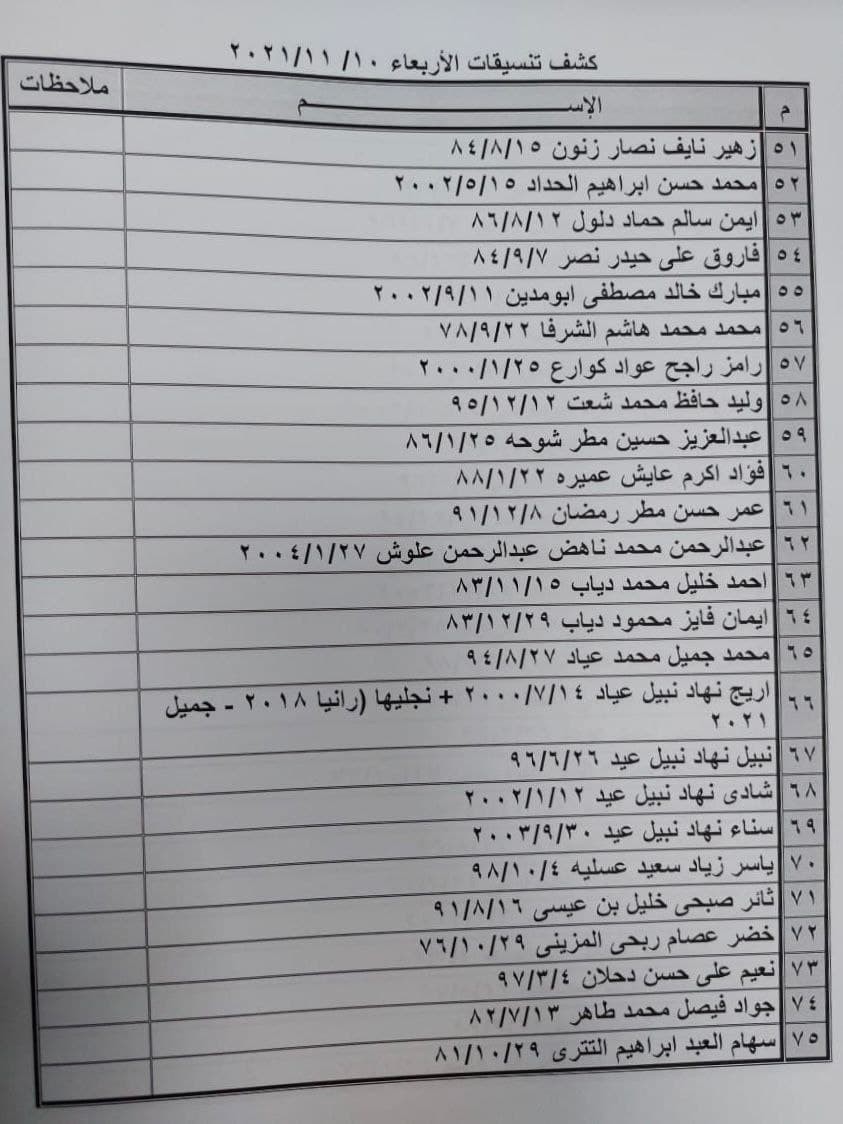 كشف تنسيقات الأربعاء ١٠/ ٢٠٢١/١١
م الإســـــــــــــم ملاحظات
٥١ زهير نايف نصار زنون ٨٤/٨/١٥
٥٢ محمد حسن ابراهيم الحداد ٢٠٠٢/٥/١٥
٥٣ ايمن سالم حماد دلول ٨٦/٨/١٢
٥٤ فاروق على حيدر نصر ٨٤/٩/٧
٥٥ مبارك خالد مصطفى ابومدين ٢٠٠٢/٩/١١
٥٦ محمد محمد هاشم الشرفا ٧٨/٩/٢٢
٥٧ رامز راجح عواد كوارع ٢٠٠٠/١/٢٥
٥٨ وليد حافظ محمد شعت ٩٥/١٢/١٢
٥٩ عبدالعزيز حسين مطر شوحه ٨٦/١/٢٥
٦٠ فؤاد اكرم عايش عميره ٨٨/١/٢٢
٦١ عمر حسن مطر رمضان ٩١/١٢/٨
٦٢ عبدالرحمن محمد ناهض عبدالرحمن علوش ٢٠٠٤/١/٢٧
٦٣ احمد خليل محمد دياب ٨٣/١١/١٥
٦٤ ايمان فايز محمود دياب ٨٣/١٢/٢٩
٦٥ محمد جميل محمد عياد ٩٤/٨/٢٧
٦٦ اريج نهاد نبيل عياد ٢٠٠٠/٧/١٤ + نجليها (رانيا ٢٠١٨ - جميل
٢٠٢١
٦٧ نبيل نهاد نبيل عيد ٩٦/٦/٢٦
٦٨ شادى نهاد نبيل عيد ٢٠٠٢/١/١٢
٦٩ سناء نهاد نبيل عيد ٢٠٠٣/٩/٣٠
٧٠ ياسر زياد سعيد عسليه ٩٨/١٠/٤
٧١ ثائر صبحى خليل بن عيسى ٩١/٨/١٦
٧٢ خضر عصام ربحى المزينى ٧٦/١٠/٢٩
٧٣ نعيم على حسن دحلان ٩٧/٣/٤
٧٤ جواد فيصل محمد طاهر ٨٢/٧/١٣
٧٥ سهام العبد ابراهيم التترى ٨١/١٠/٢٩